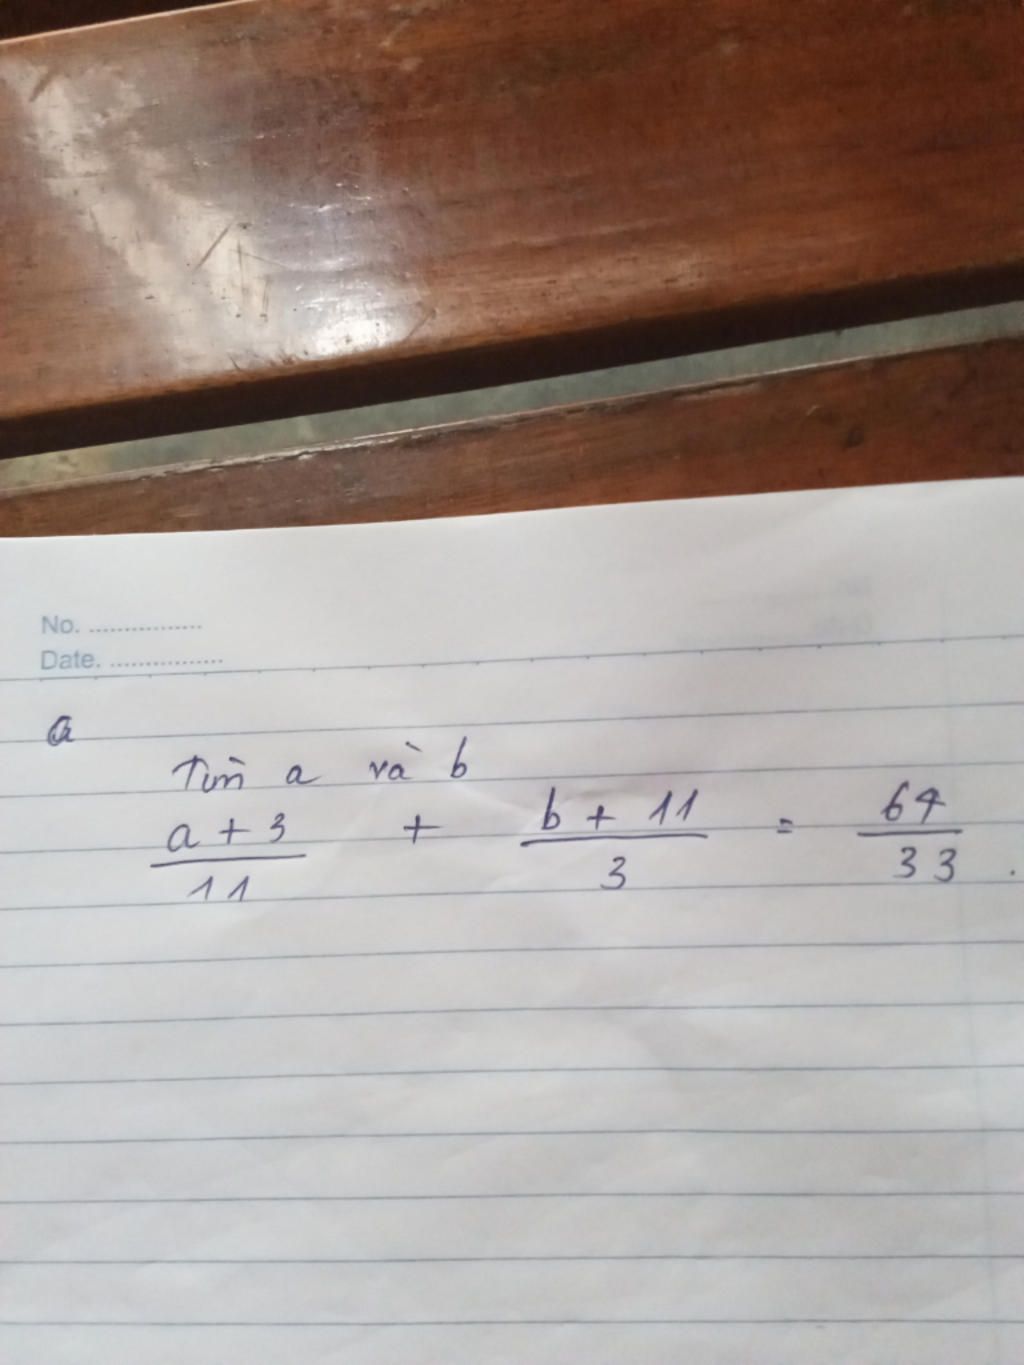 No. ................
Date. ................
a
Tìm a và b
a + 3 + b + 11 = 64
11 3 33 .